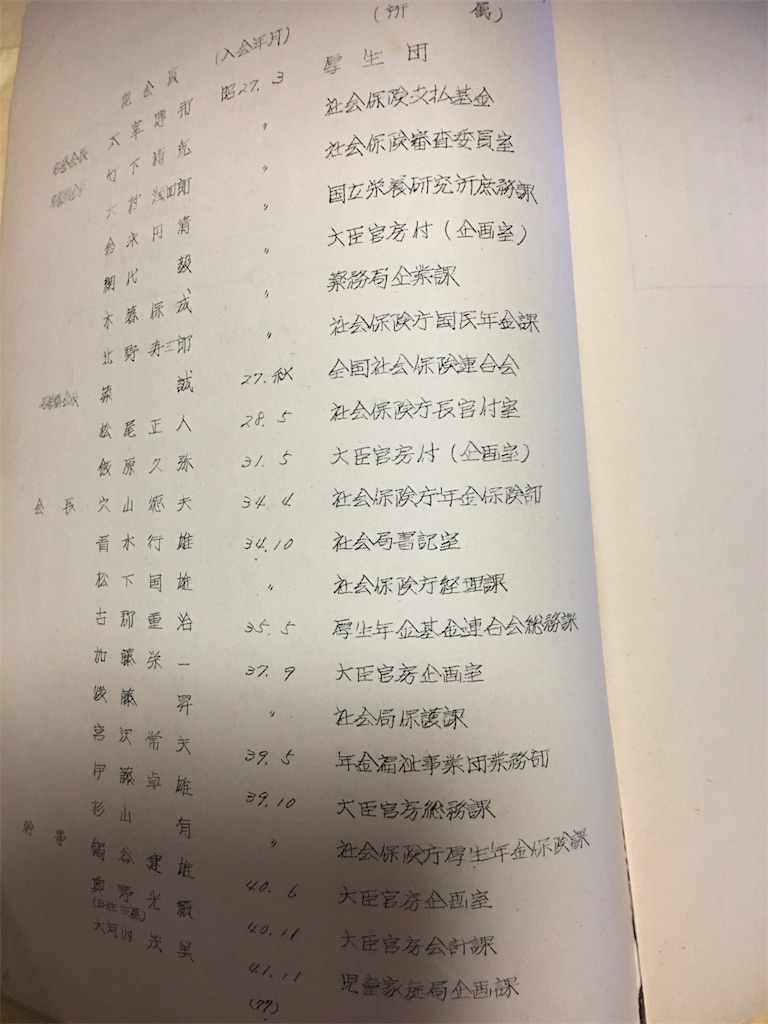 現会員 (入会年月) (所属)
太宰博邦 昭27.3 厚生団
竹下精紀 〃 社会保険支払基金
大村潤四郎 〃 社会保険審査委員室
永円清 〃 国立栄養研究所庶務課
網代毅 〃 大臣官房付(企画室)
木暮保成 〃 薬務局企業課
北野寿三郎 〃 社会保険庁国民年金課
誠 27.秋 全国社会保険連合会
松尾正人 28.5 社会保険庁長官付室
飯原久弥 31.5 大臣官房付(企画室)
会長 穴山徳夫 34.4 社会保険庁年金保険部
青木行雄 34.10 社会局書記室
松下国雄 〃 社会保険庁経理課
古郡重治 35.5 厚生年金基金連合会総務課
加藤栄一 37.9 大臣官房企画室
後藤昇 〃 社会局保護課
宮沢常夫 39.5 年金福祉事業団業務部
伊藤卓雄 39.10 大臣官房総務課
杉山有 〃 社会保険庁厚生年金保険課
幹事 鍋谷建雄 40.6 大臣官房企画室
奥野光 40.11 大臣官房会計課
大河内美 41.11 児童家庭局企画課
(77)